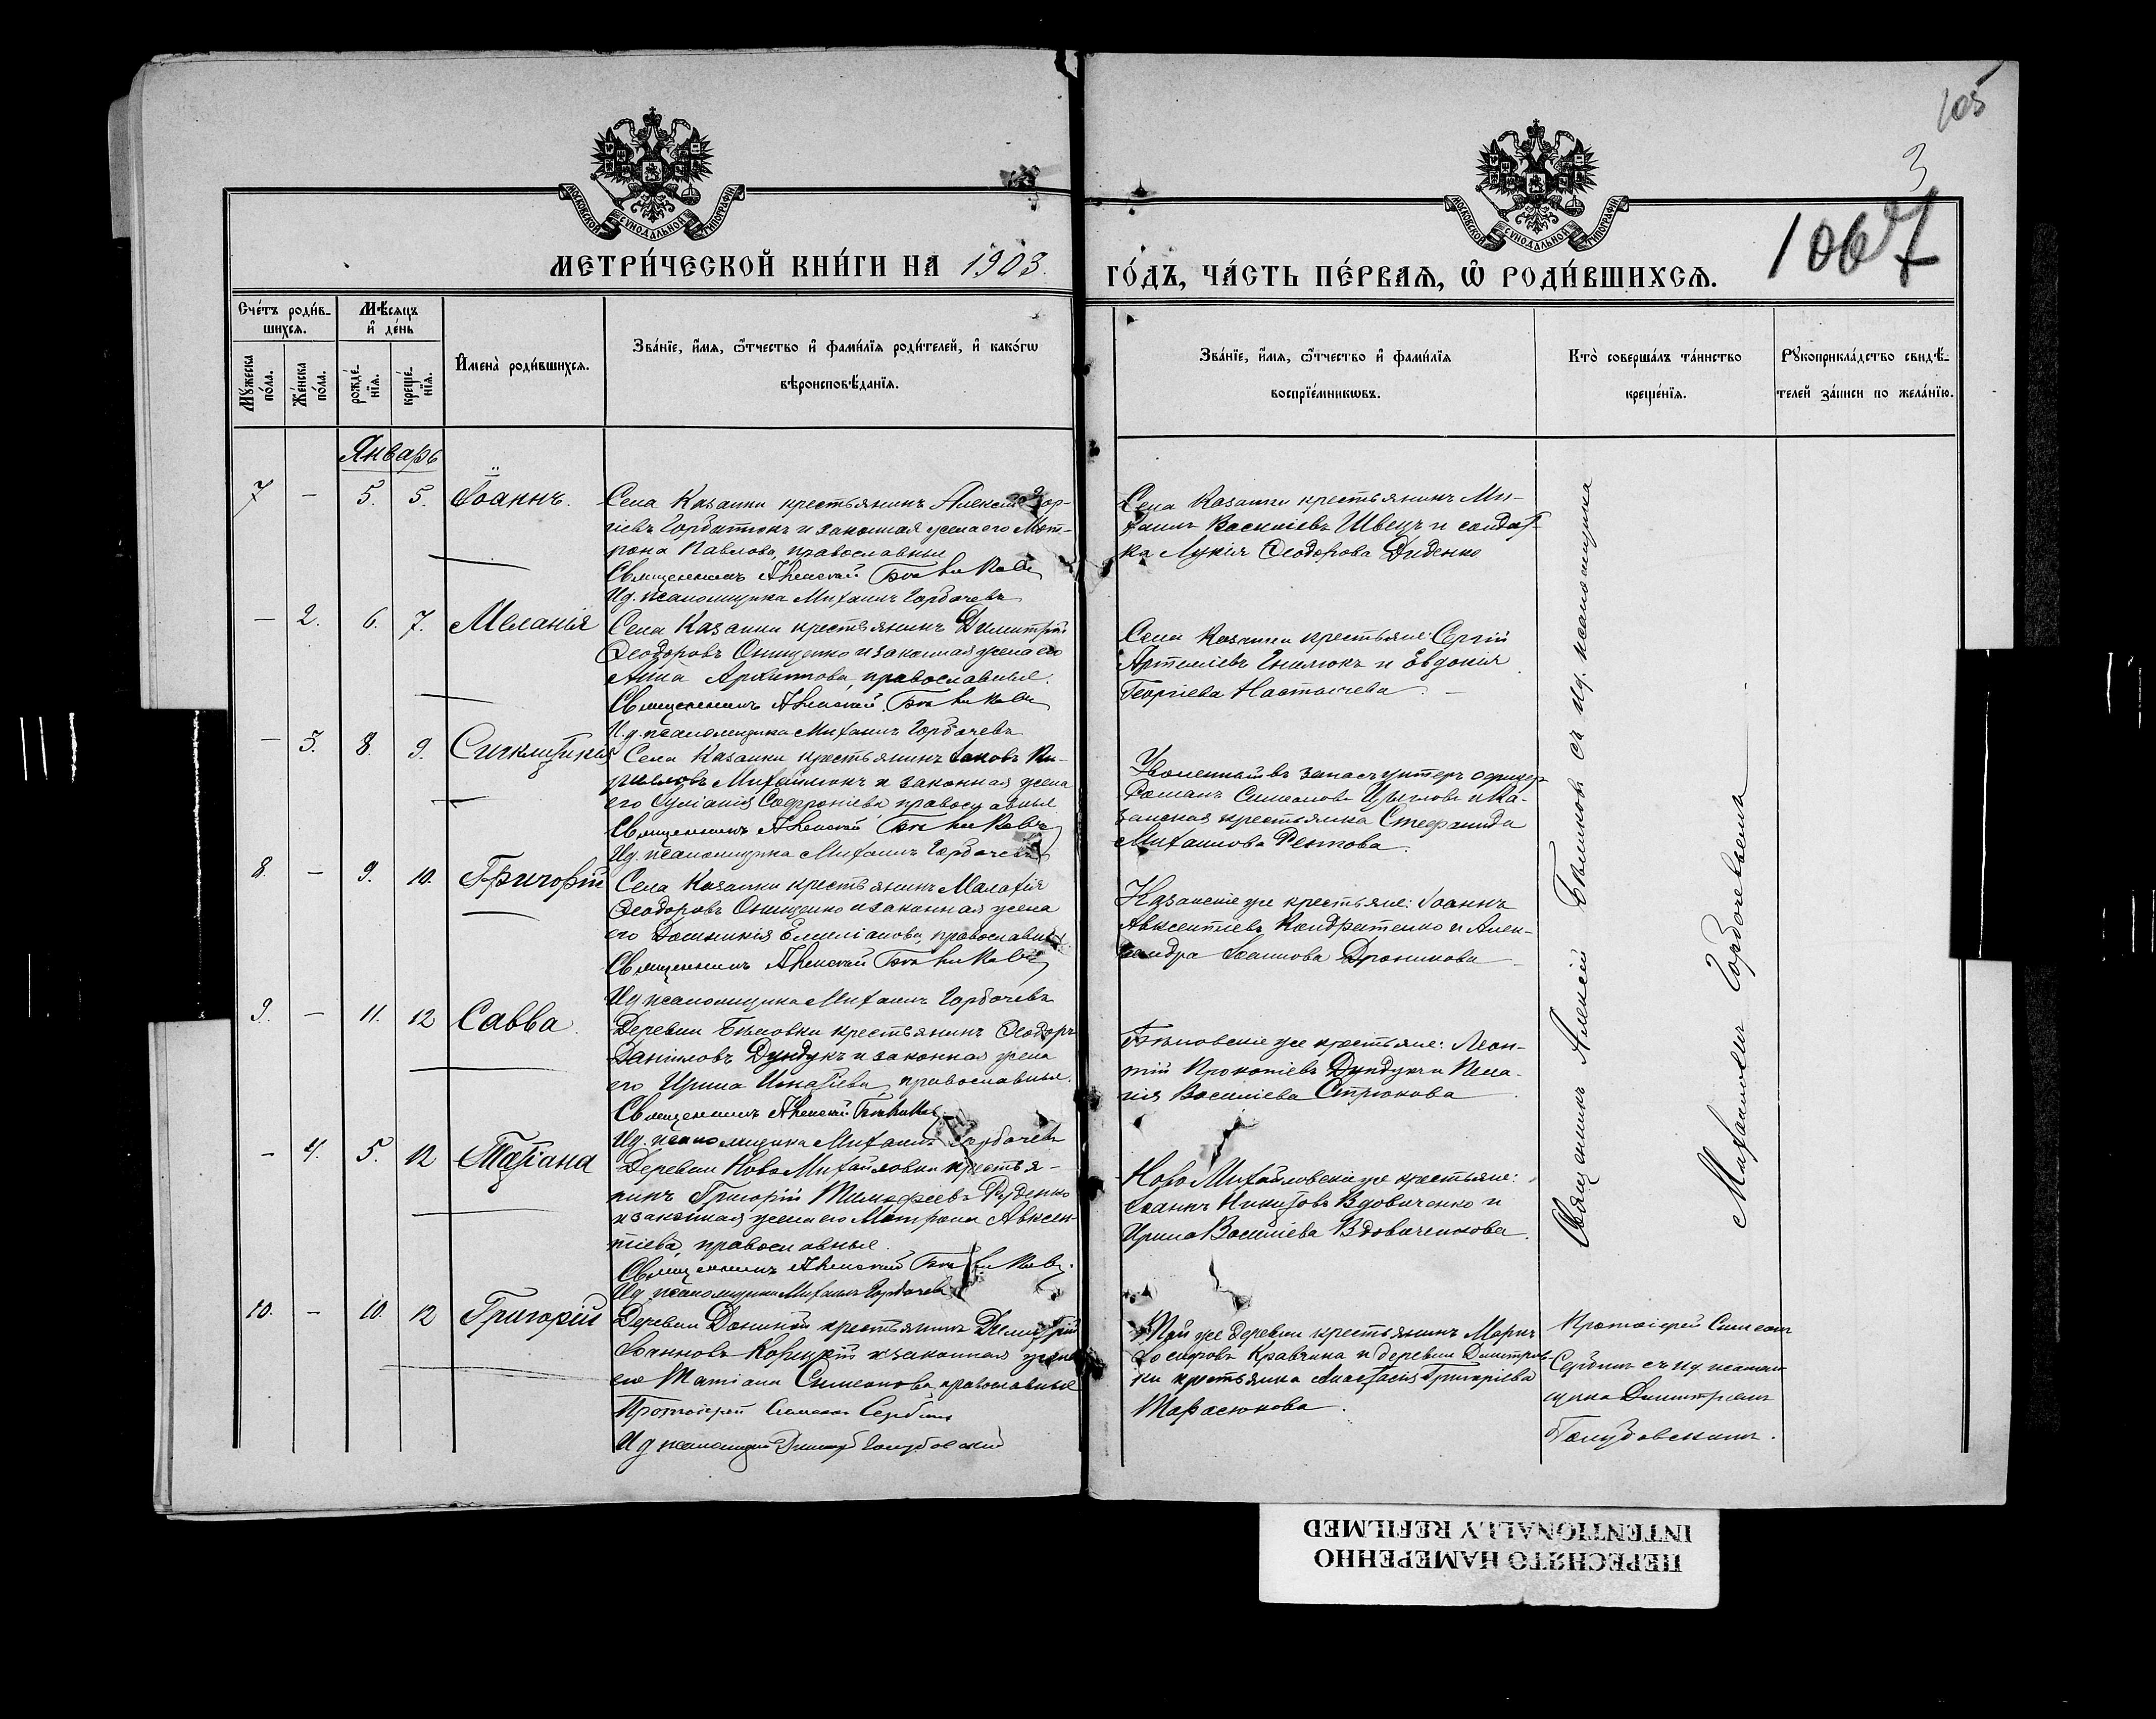 105
3
1067
МОСКОВСКОЙ СУНОДАЛЬНОЙ ТИПОГРАФІИ
МОСКОВСКОЙ СУНОДАЛЬНОЙ ТИПОГРАФІИ
МЕТРИ́ЧЕСКОЙ КНИ́ГИ НА 1903.
ГО́ДЪ, ЧА́СТЬ ПЕ́РВАѦ, Ѡ҆ РОДИ́ВШИХСѦ.
Сче́тъ роди́в-
шихсѧ.
Мѣ́сѧцъ
и҆ де́нь
Мꙋ́жеска
по́ла.
Же́нска
по́ла.
рожде́-
нїѧ.
креще́-
нїѧ.
И҆мена̀ роди́вшихсѧ.
Зва́нїе, и҆́мѧ, ѻ҆́тчество и҆ фами́лїѧ роди́телей, и҆ како́гѡ
вѣроисповѣ́данїѧ.
Зва́нїе, и҆́мѧ, ѻ҆́тчество и҆ фами́лїѧ
воспрїе́мникѡвъ.
Кто̀ соверша́лъ та́инство
креще́нїѧ.
Рꙋкоприкла́дство свидѣ́-
телей за́писи по жела́нїю.
Январь
7 — 5. 5. Іоаннъ.
Села Казанки крестьянинъ Алексій
гіевъ Горбатюкъ и законная жена его Мат-
рона Павлова, православные
Священникъ Алексій Бѣликовъ
Ид. псаломщика Михаилъ Горбачевъ
Села Казанки крестьянинъ Ми-
хаилъ Василіевъ Швецъ и солдат-
ка Лукія Ѳеодорова Диденко
— 2. 6. 7. Меланія
Села Казанки крестьянинъ Димитрій
Ѳеодоровъ Онищенко и законная жена его
Анна Архипова, православные.
Священникъ Алексій Бѣликовъ
И.д. псаломщика Михаилъ Горбачевъ
Села Казанки крестьяне: Сергій
Артеміевъ Гнилюкъ и Евдокія
Георгіева
— 3. 8. 9. Сигклитикія
Села Казанки крестьянинъ Іаковъ Ки-
рилловъ Михайлюкъ и законная жена
его Іуліанія Софроніева православные
Священникъ Алексій Бѣликовъ
Ид. псаломщика Михаилъ Горбачевъ
Уволенный въ запасъ унтеръ офицер
Романъ Симеоновъ и Ка-
занская крестьянка Стефанида
Михаилова
8. — 9. 10. Григорій
Села Казанки крестьянинъ Малахія
Ѳеодоровъ Онищенко и законная жена
его Домникія Емиліанова, православные
Священникъ Алексій Бѣликовъ
Ид псаломщика Михаилъ Горбачевъ
Казанскіе же крестьяне: Іоаннъ
Авксентіевъ Кондратенко и Алек-
сандра Іоаннова Дроникова
9. — 11. 12 Савва.
Деревни Бѣловки крестьянинъ Ѳеодоръ
Даніиловъ Дундукъ и законная жена
его Ирина Игнатіева, православные.
Священникъ Алексій Бѣликовъ
Ид. псаломщика Михаилъ Горбачевъ
Бѣловскіе же крестьяне: Леон-
тій Прокопіевъ Дундукъ и Пела-
гія Василіева Стрюкова
— 4. 5. 12 Татіана
Деревни Ново Михайловки крестья-
нинъ Григорій Тимофеевъ Руденко
и законная жена его Матрона Авксен-
тіева, православные.
Священникъ Алексій Бѣликовъ
Ид псаломщика Михаилъ Горбачевъ
Ново Михайловскіе же крестьяне:
Іоаннъ Никитовъ Вдовиченко и
Ирина Василіева Вдовиченкова.
10. — 10. 12 Григорій
Деревни крестьянинъ Димитрій
Іоанновъ и законная жена
его Татіана Симеонова, православные
Протоіерей Симеонъ Сербинъ
Ид псаломщика Димитрій Голубовскій
Той же деревни крестьянинъ Маркъ
Іосифовъ Кравчина и деревни Димитров-
ки крестьянка Анастасія Григоріева
Тарасюкова.
Священникъ Алексій Бѣликовъ съ ид. псаломщика
Михаиломъ Горбачевымъ
Протоіерей Симеонъ
Сербинъ съ ид псалом-
щика Димитріемъ
Голубовскимъ.
ПЕРЕСНЯТО НАМЕРЕННО
INTENTIONALLY REFILMED